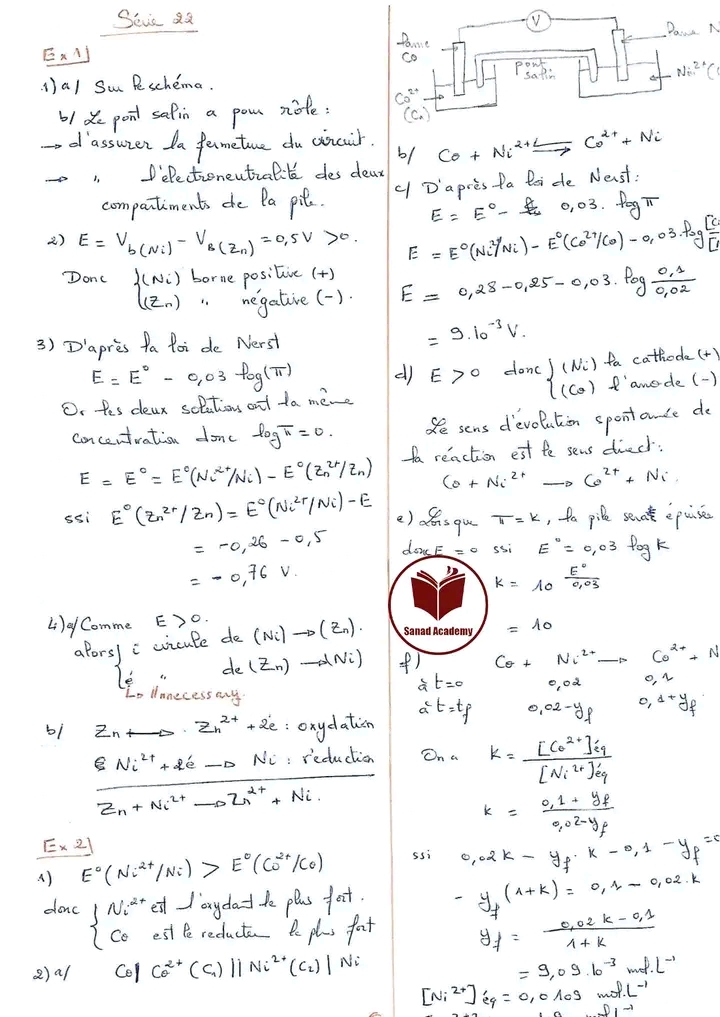 Série 22
Ex 1
1) a/ Sur le schéma.
b/ Le pont salin a pour rôle :
→ d'assurer la fermeture du circuit.
→ " l'électroneutralité des deux
compartiments de la pile.
2) E = Vb(Ni) - VB(Zn) = 0,5V > 0.
Donc { (Ni) borne positive (+)
(Zn) " négative (-).
3) D'après la loi de Nerst
E = E° - 0,03 log(π)
Or les deux solutions ont la même
concentration donc log π = 0.
E = E° = E°(Ni²⁺/Ni) - E°(Zn²⁺/Zn)
ssi E°(Zn²⁺/Zn) = E°(Ni²⁺/Ni) - E
= -0,26 - 0,5
= -0,76 V.
4) a/ Comme E > 0.
alors { i circule de (Ni) → (Zn).
é " de (Zn) → (Ni)
↳ Unnecessary.
b/ Zn ⟷ Zn²⁺ + 2é : oxydation
Ni²⁺ + 2é → Ni : réduction
Zn + Ni²⁺ → Zn²⁺ + Ni.
Ex 2
1) E°(Ni²⁺/Ni) > E°(Co²⁺/Co)
donc { Ni²⁺ est l'oxydant le plus fort.
Co est le reducteu le plus fort
2) a/ Co | Co²⁺ (C1) || Ni²⁺ (C2) | Ni
V
lame
Co
pont
salin
Co²⁺
(C1)
b/ Co + Ni²⁺ ⇌ Co²⁺ + Ni
c/ D'après la loi de Nerst :
E = E° - 0,03. log π
E = E°(Ni²⁺/Ni) - E°(Co²⁺/Co) - 0,03. log
E = 0,28 - 0,25 - 0,03. log 0,1/0,02
= 9.10⁻³ V.
d) E > 0 donc { (Ni) la cathode (+)
(Co) l'anode (-)
Le sens d'évolution spontanée de
la réaction est le sens direct :
Co + Ni²⁺ → Co²⁺ + Ni.
e) Lorsque π = k, la pile serait épuisée
donc E = 0 ssi E° = 0,03 log k
k = 10 E°/0,03
= 10
Sanad Academy
f) Co + Ni²⁺ → Co²⁺ + N
à t=0 0,02 0,1
à t=tf 0,02-yf 0,1+yf
On a k = [Co²⁺]éq / [Ni²⁺]éq
k = 0,1 + yf / 0,02-yf
ssi 0,02k - yf. k - 0,1 - yf = 0
- yf (1+k) = 0,1 - 0,02.k
yf = 0,02 k - 0,1 / 1+k
= 9,09.10⁻³ mol.L⁻¹
[Ni²⁺]éq = 0,0109 mol.L⁻¹